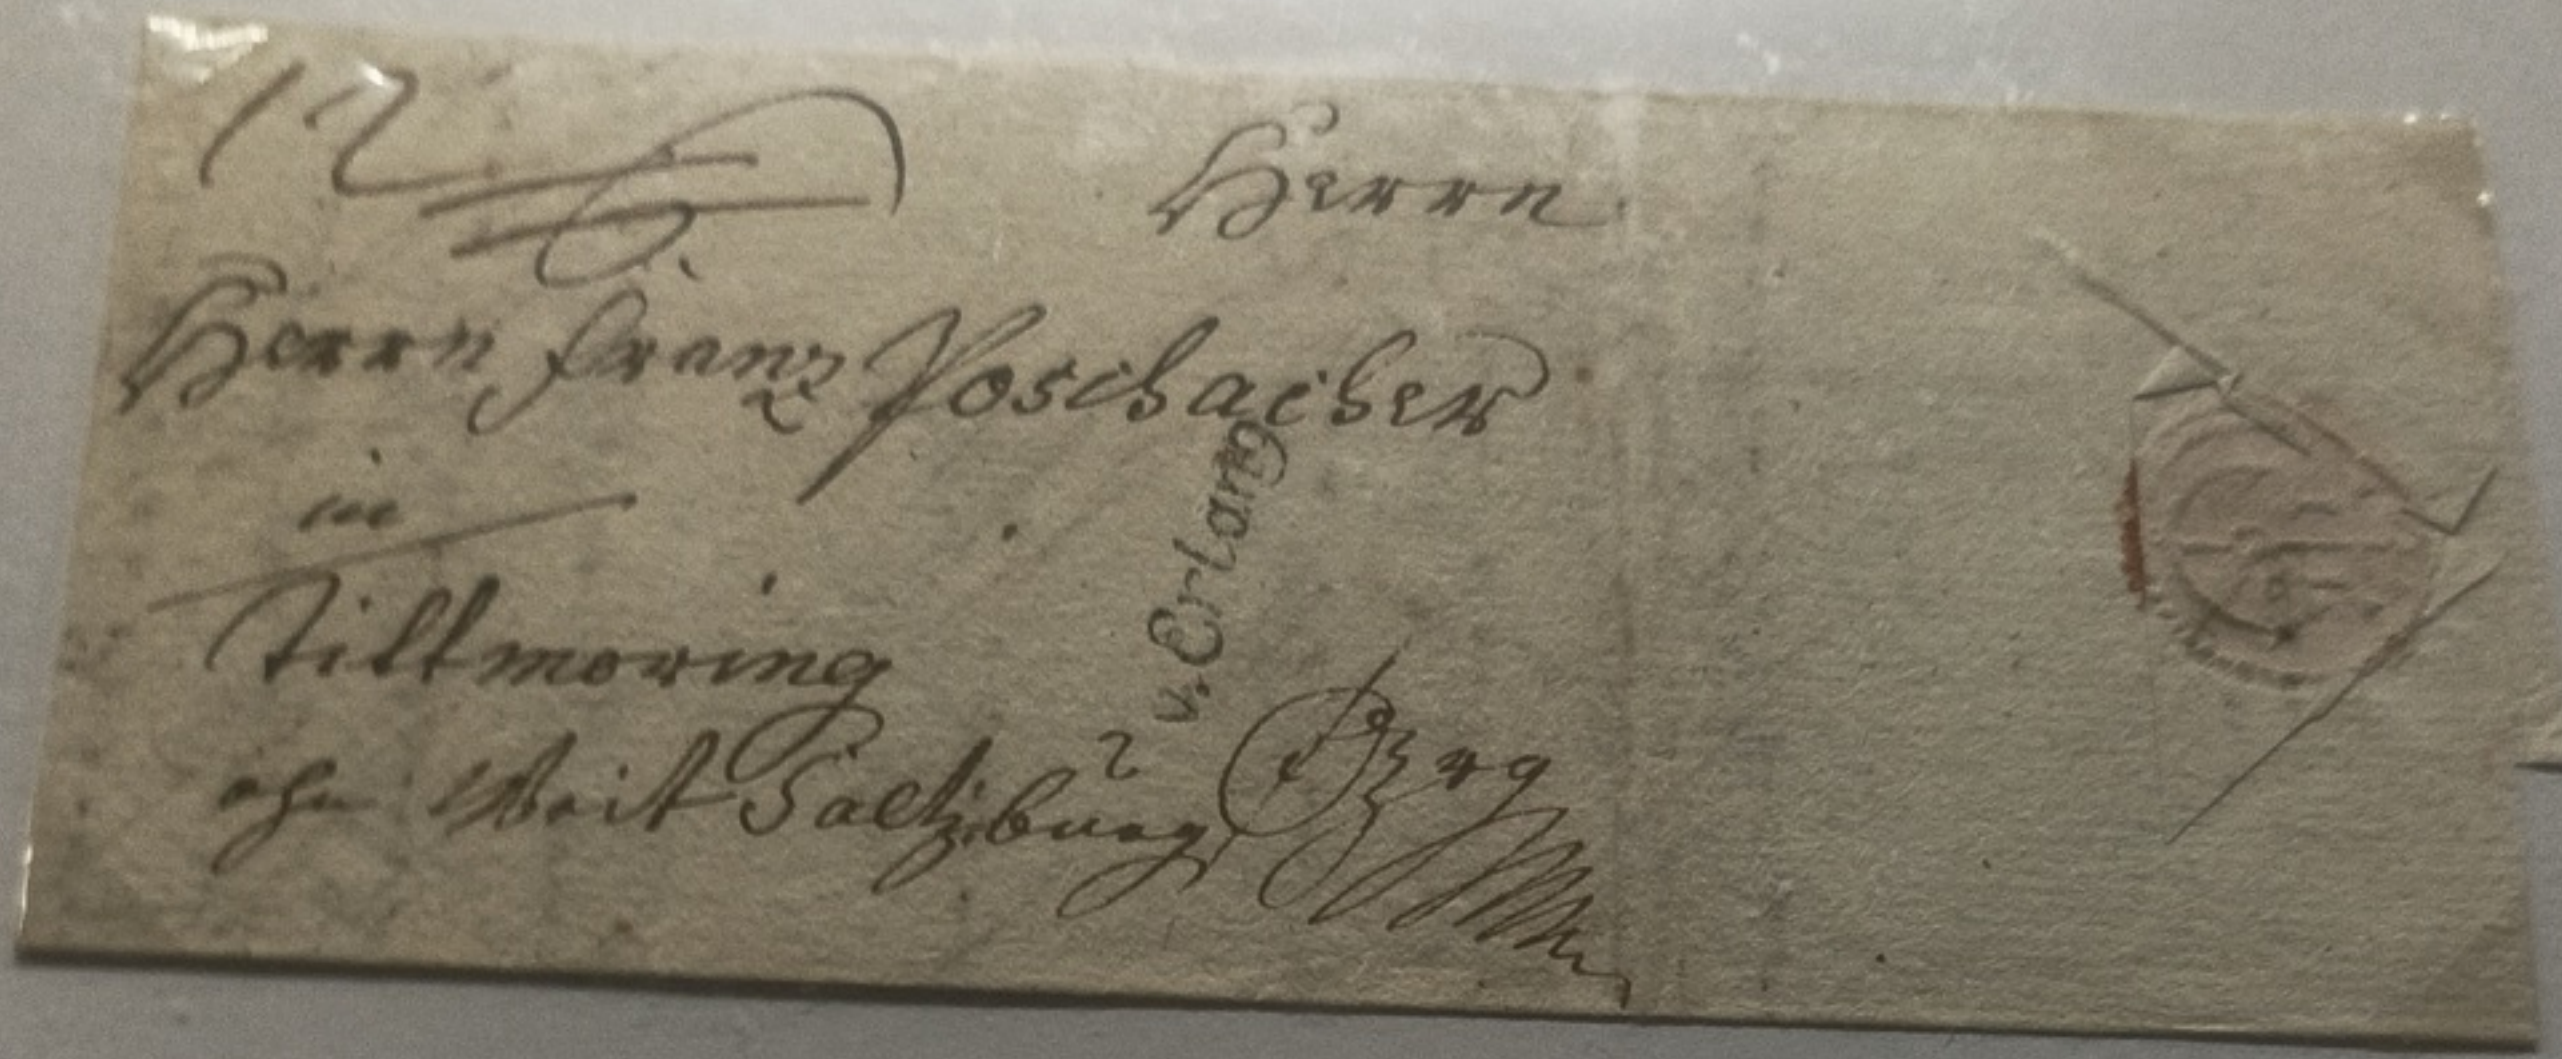 12
Herrn
Herrn Franz Poschacher
in
Tittmoning
ohn Weit Saltzburg
v. Erlang